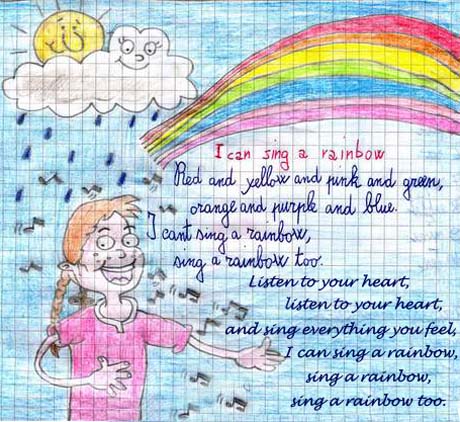 I can sing a rainbow
Red and yellow and pink and green,
orange and purple and blue.
I cant sing a rainbow,
sing a rainbow too.
Listen to your heart,
listen to your heart,
and sing everything you feel,
I can sing a rainbow,
sing a rainbow,
sing a rainbow too.